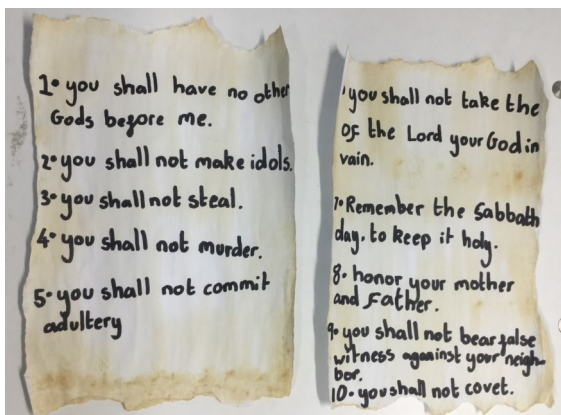 1. you shall have no other
Gods before me.
2. you shall not make idols.
3. you shall not steal.
4. you shall not murder.
5. you shall not commit
adultery
you shall not take the
of the Lord your God in
vain.
7. Remember the Sabbath
day. to keep it holy.
8. honor your mother
and Father.
9. you shall not bear false
witness against your neigh-
bor.
10. you shall not covet.